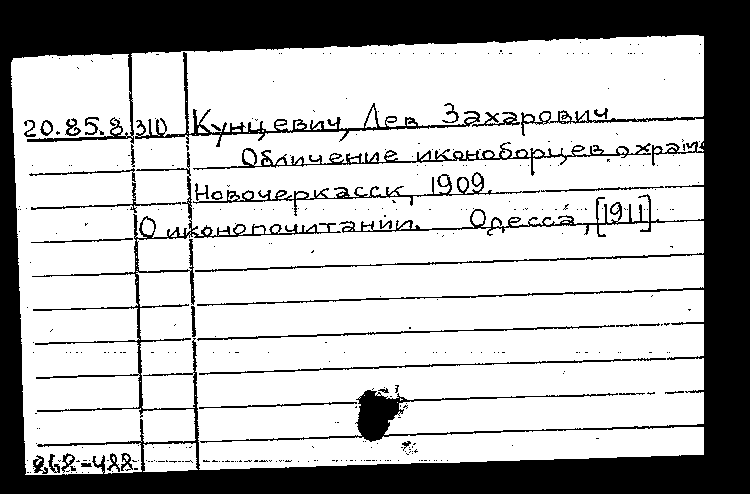 20.85.8.310 Кунцевич, Лев Захарович
Обличение иконоборцев о храме
Новочеркасск, 1909.
О иконопочитании. Одесса, [1911].
868-488